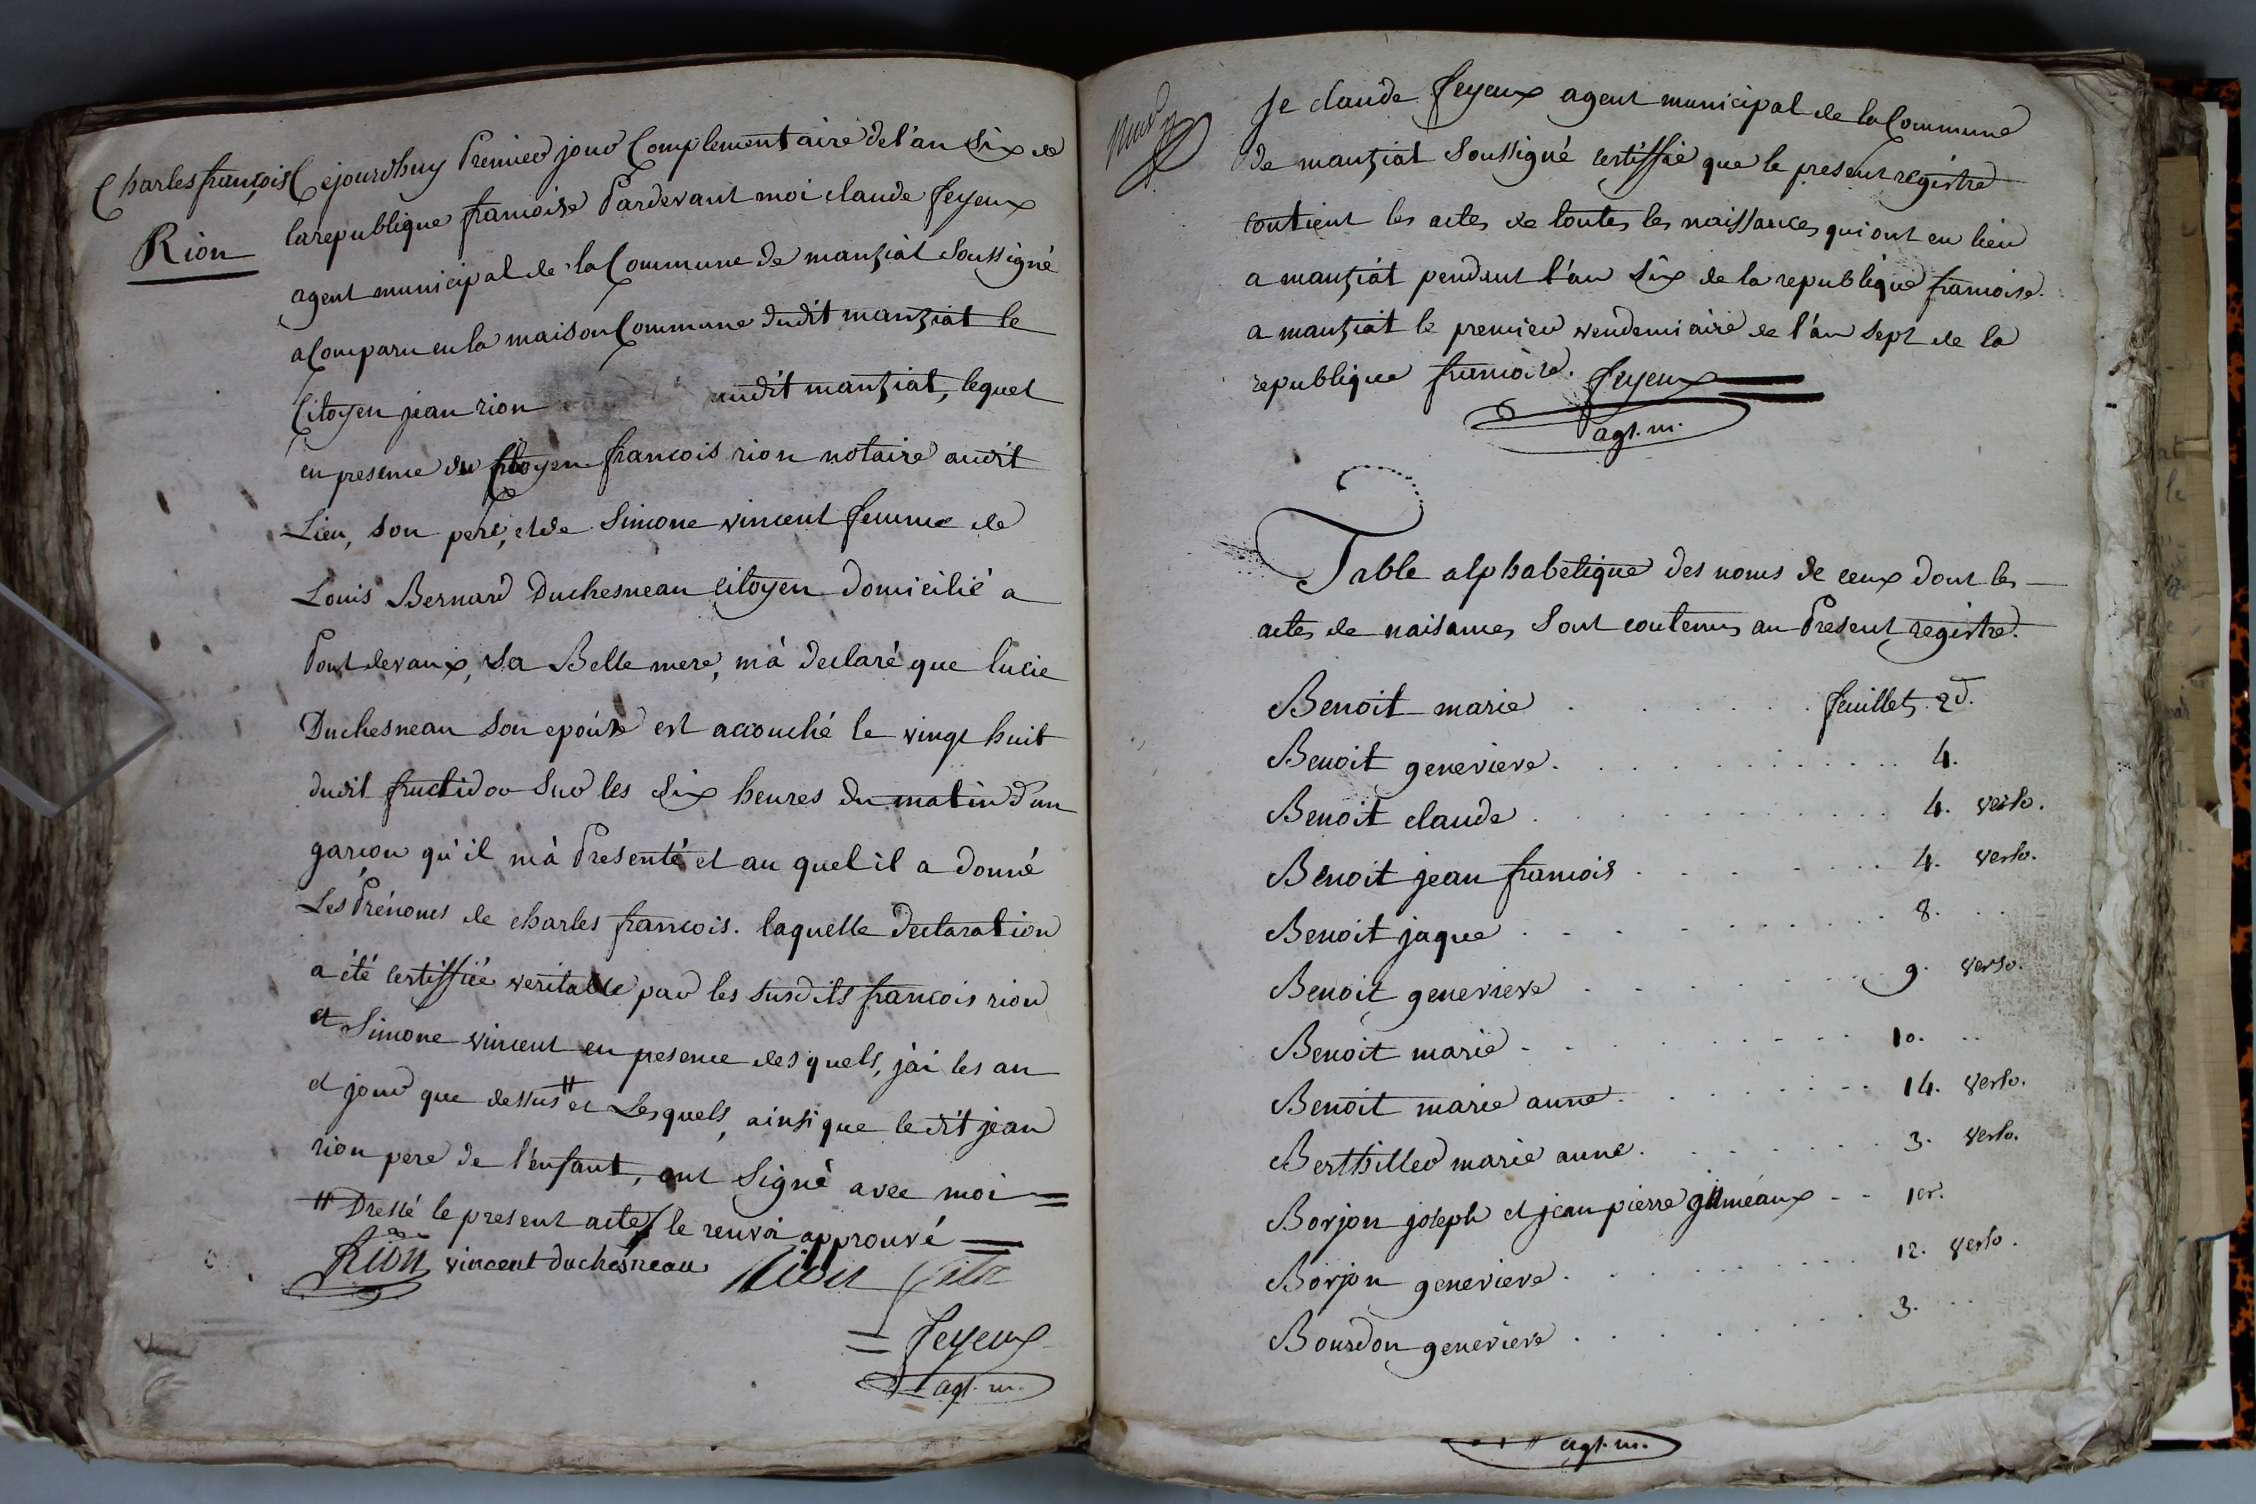 Charles françois
Rion
Cejourdhuy Premier jour Complementaire de l'an Six de
la republique francoise Pardevant moi claude feyeux
agent municipal de la Commune de manziat Soussigné
a Comparu en la maison Commune dudit manziat le
Citoyen jean rion audit manziat, lequel
en presence du Citoyen francois rion notaire audit
Lieu, son pere, et de Simone vincent femme de
Louis Bernard Duchesneau citoyen domicilié a
Pontdevaux, sa Belle mere, m'a declaré que lucie
Duchesneau son epouse est accouché le vingt huit
dudit fructidor sur les six heures du matin d'un
garcon qu'il m'a Presenté et au quel il a donné
Les Prénoms de charles francois. laquelle declaration
a été certiffiée veritable par les susdits francois rion
et Simone vincent en presence desquels, j'ai les an
et jour que dessus # et Lesquels, ainsi que ledit jean
rion pere de l'enfant, ont Signé avec moi =
# Dressé le present acte / le renvoi approuvé =
Rion vincent duchesneau Rion
= feyeux
agt. m.
Je claude feyeux agent municipal de la Commune
de manziat Soussigné certiffie que le present registre
contient les actes de toutes les naissances qui ont eu lieu
a manziat pendant l'an Six de la republique francoise.
a manziat le premier vendemiaire de l'an Sept de la
republique francoise. feyeux
agt. m.
Table alphabetique des noms de ceux dont les
actes de naisances Sont contenus au Present registre.
Benoit marie . . . . . . feuillet, 2d.
Benoit genevieve . . . . . . 4.
Benoit claude . . . . . . 4. verso.
Benoit jean francois . . . . . . 4. verso.
Benoit jaque . . . . . . 8. . .
Benoit genevieve . . . . . . 9. verso.
Benoit marie . . . . . . 10. . .
Benoit marie anne . . . . . . 14. verso.
Berthiller marie anne . . . . . . 3. verso.
Borjon joseph et jean pierre guméaux - - 1er.
Borjon genevieve . . . . . . 12. verso.
Bourdon genevieve . . . . . . 3. . .
agt. m.